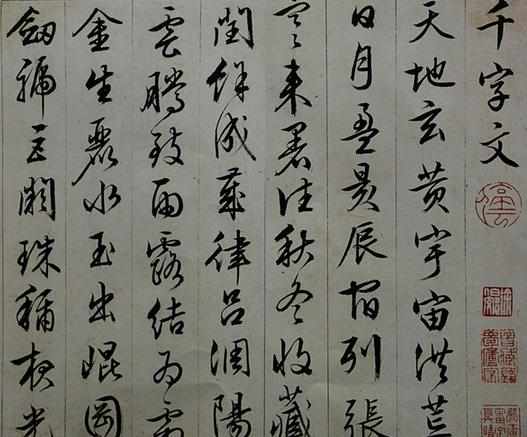 千字文
天地玄黄宇宙洪荒
日月盈昃辰宿列張
寒来暑往秋冬收藏
閏餘成歲律呂調陽
雲騰致雨露結為霜
金生麗水玉出崐岡
劔號巨闕珠稱夜光